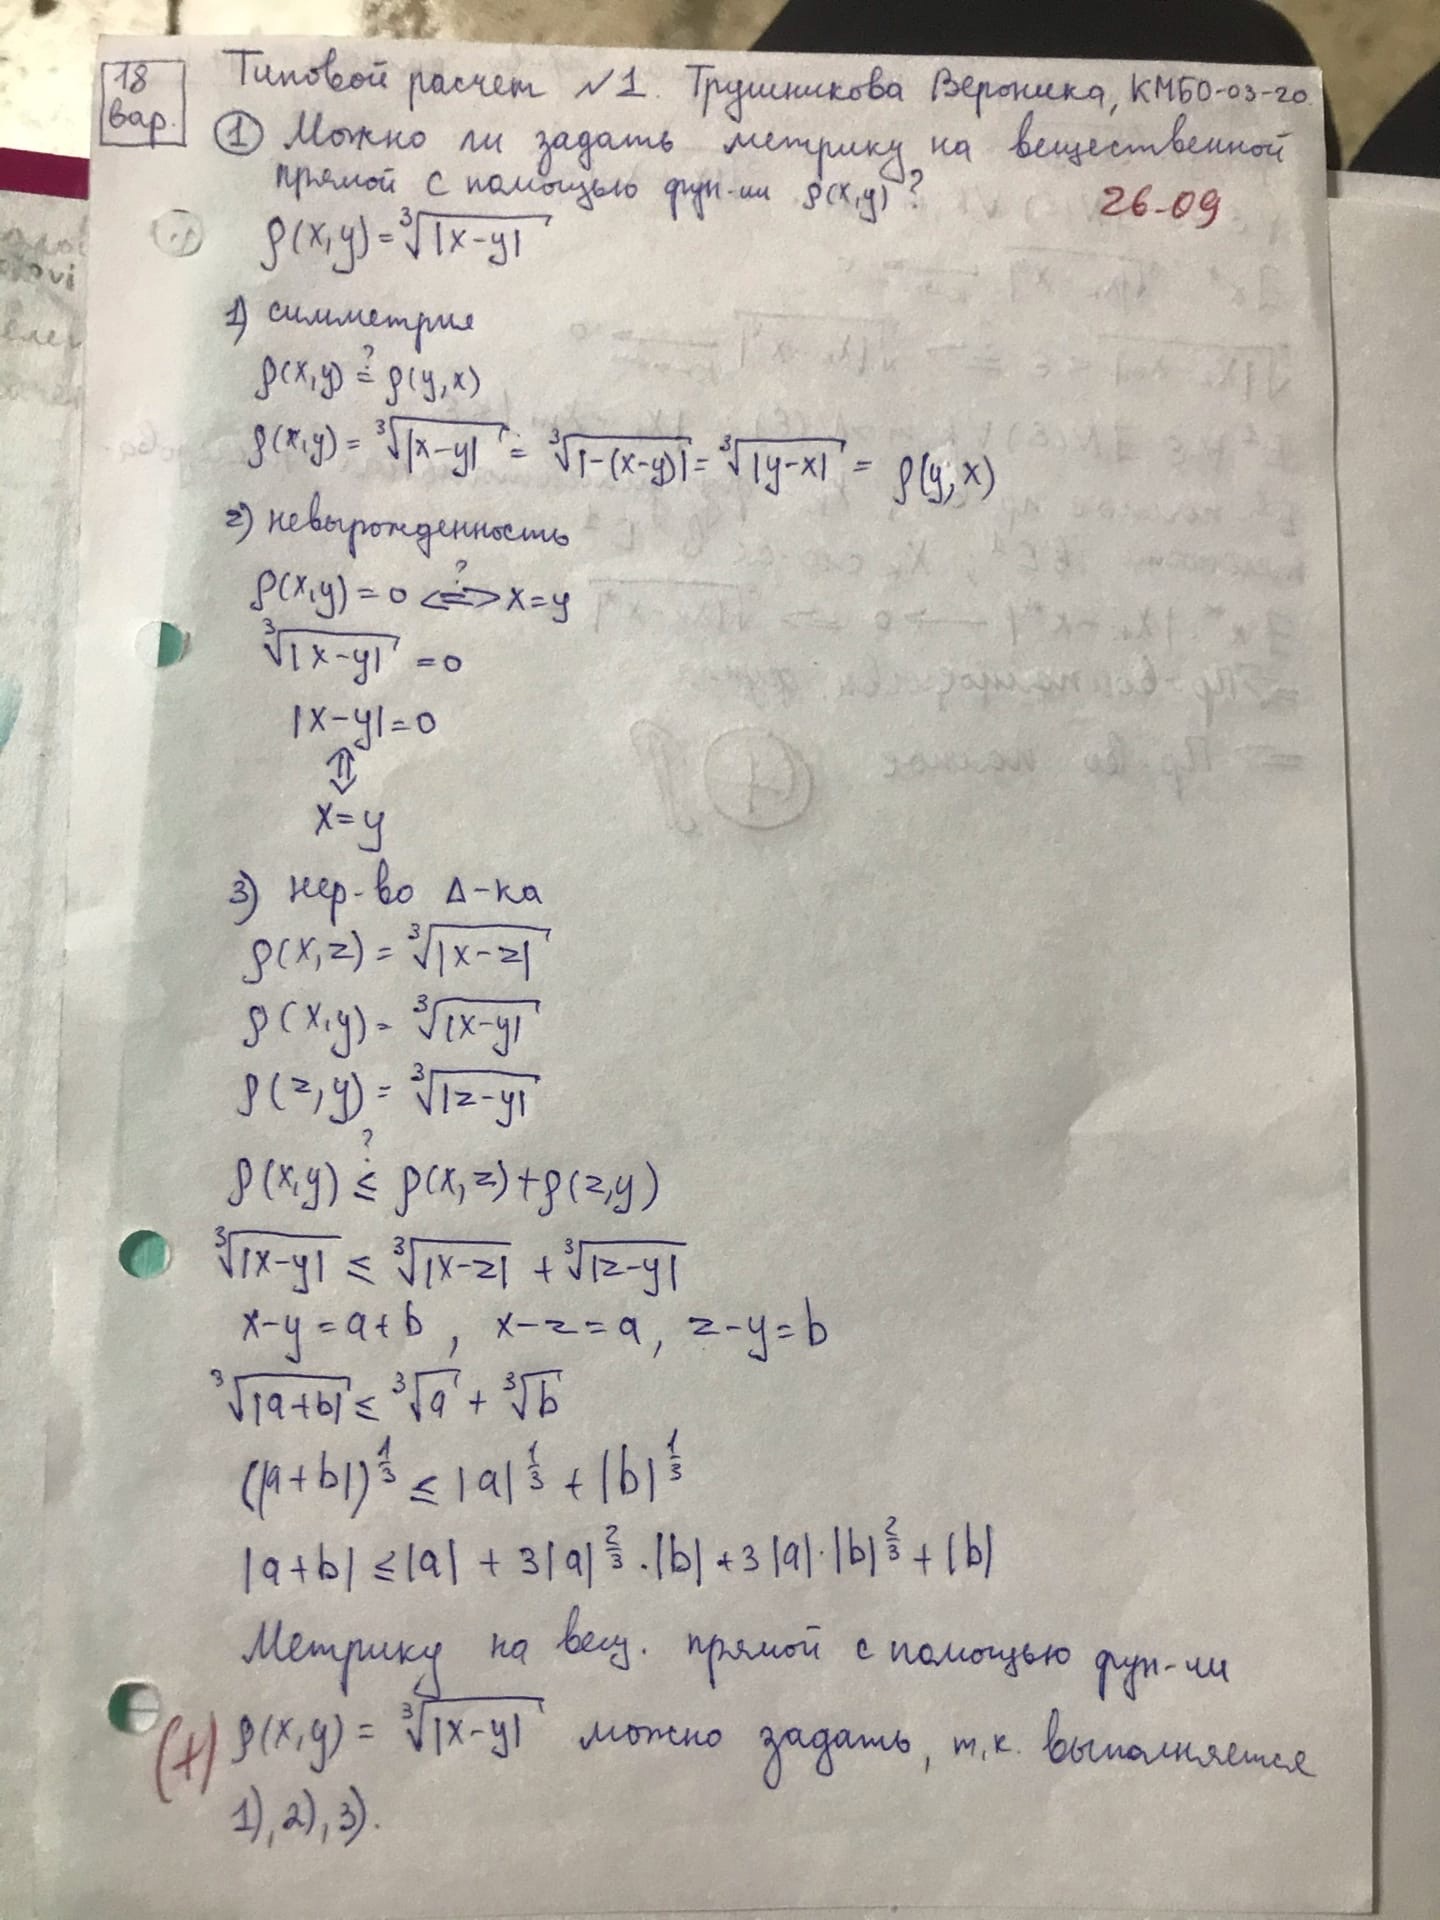 18 вар.
Типовой расчет №1. Трушникова Вероника, КМБО-03-20
① Можно ли задать метрику на вещественной
прямой с помощью фун-ии ρ(x,y)?
26-09
ρ(x,y) = ∛|x-y|
1) симметрия
ρ(x,y) ≟ ρ(y,x)
ρ(x,y) = ∛|x-y| = ∛|-(x-y)| = ∛|y-x| = ρ(y,x)
2) невырожденность
ρ(x,y) = 0 <=?=> x=y
∛|x-y| = 0
|x-y| = 0
⇕
x=y
3) нер-во Δ-ка
ρ(x,z) = ∛|x-z|
ρ(x,y) = ∛|x-y|
ρ(z,y) = ∛|z-y|
?
ρ(x,y) ≤ ρ(x,z)+ρ(z,y)
∛|x-y| ≤ ∛|x-z| + ∛|z-y|
x-y=a+b, x-z=a, z-y=b
∛|a+b| ≤ ∛a + ∛b
(|a+b|)^(1/3) ≤ |a|^(1/3) + |b|^(1/3)
|a+b| ≤ |a| + 3|a|^(2/3)·|b| + 3|a|·|b|^(2/3) + |b|
Метрику на вещ. прямой с помощью фун-ии
(+) ρ(x,y) = ∛|x-y| можно задать, т.к. выполняется
1), 2), 3).